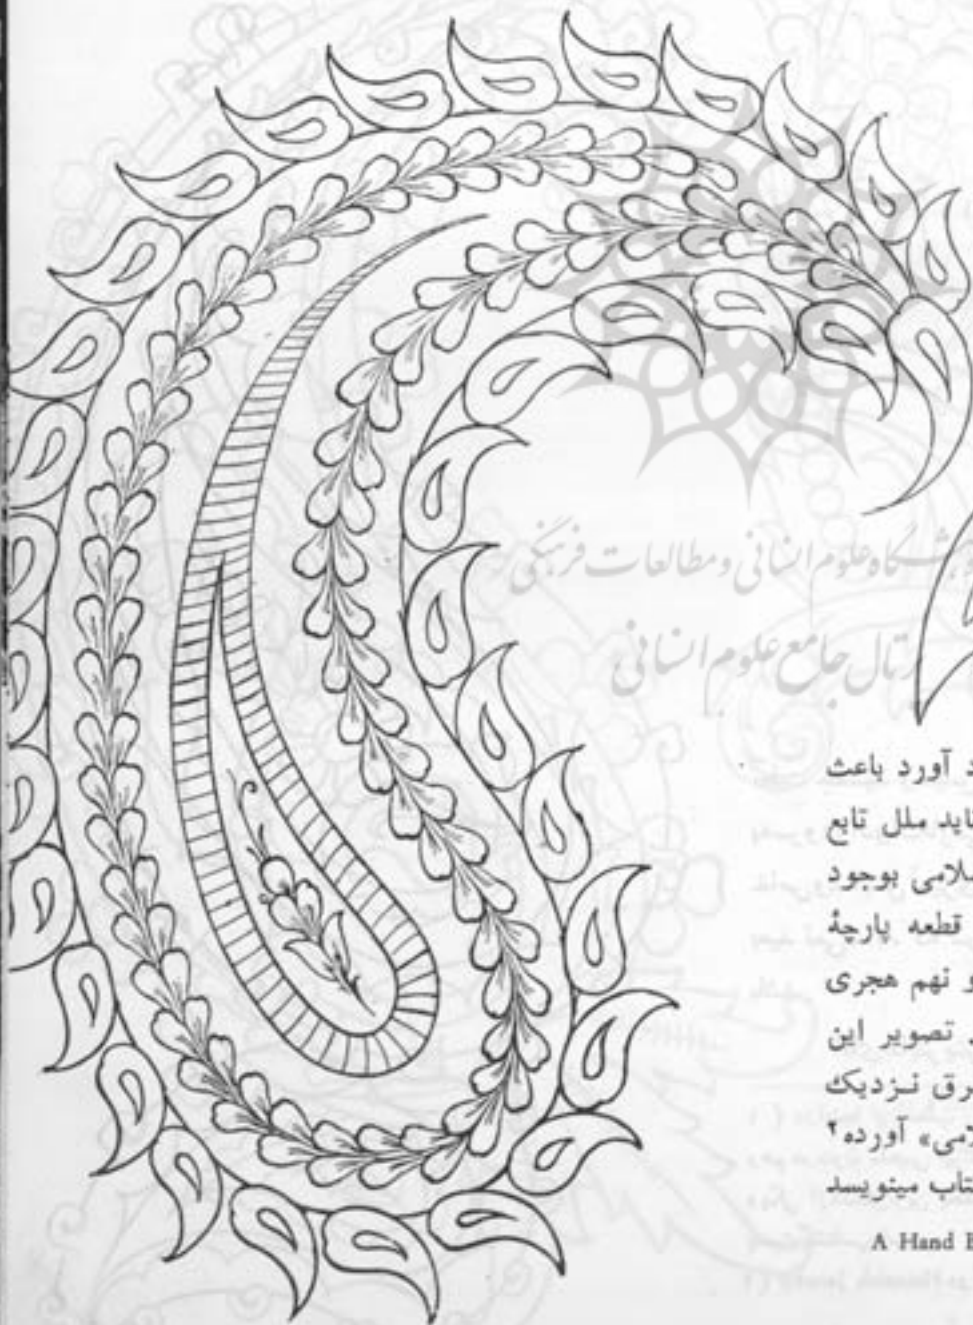 پژوهشگاه علوم انسانی و مطالعات فرهنگی
پرتال جامع علوم انسانی
آورد باعث
ملل تابع
بوجود
قطعه پارچهٔ
و نهم هجری
تصویر این
نـزدیک
آورده۲
مینویسد
A Hand